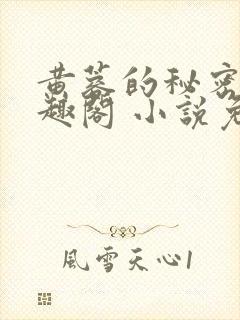 黄蓉的秘密
趣閣 小説免
風雪天心1